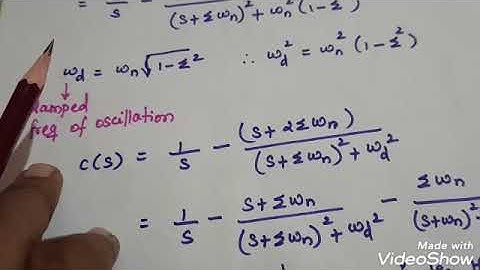 = 1/s - /(s+Σωn)² + ωn²(1-Σ²)
ωd = ωn√1-Σ² ∴ ωd² = ωn² (1-Σ²)
↓
damped
freq of oscillation
C(s) = 1/s - (s+2Σωn)/(s+Σωn)² + ωd²
= 1/s - s+Σωn/(s+Σωn)² + ωd² - Σωn/(s+ωn)²
Made with
VideoShow